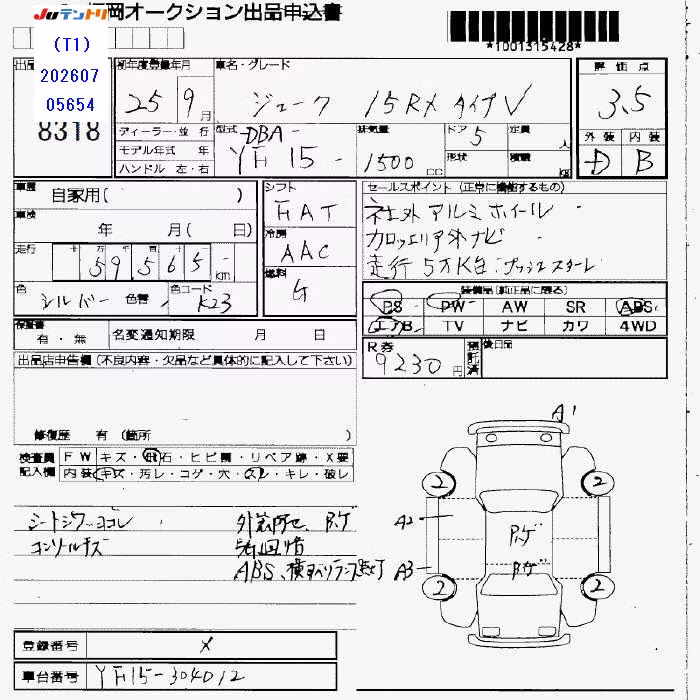 JUテントリ 福岡オークション出品申込書
*1001315428*
(T1)
202607
05654
8318
出品
初年度登録年月
25 9月
車名・グレード
ジューク 15RX タイプV
評価点
3.5
外装 内装
D B
ディーラー・並行
モデル年式 年
ハンドル 左・右
型式 DBA-
YF15-
排気量
1500 cc
ドア 5
形状
定員 人
積載 kg
車歴 自家用( )
車検 年 月( 日)
走行 十 万 千 百 十
59565 km
色 シルバー 色替
色コード K23
シフト
FAT
冷房
AAC
燃料
G
セールスポイント (正常に機能するもの)
社外アルミホイール
カロッツェリア外ナビ
走行5万K台・プッシュスタート
装備品(純正品に限る)
PS PW AW SR ABS
エアB TV ナビ カワ 4WD
保証書
有・無
名変通知期限 月 日
R券
9230円
預託済
後日品
出品店申告欄 (不良内容・欠品など具体的に記入して下さい)
修復歴 有 (箇所 )
検査員記入欄
FW キズ・飛石・ヒビ割・リペア跡・X要
内装 キズ・汚レ・コゲ・穴・スレ・キレ・破レ
シートシワ・ヨゴレ
コンソールキズ
ABS、横すべりランプ点灯
A1
A2
A3
2
2
2
2
登録番号 X
車台番号 YF15-304012